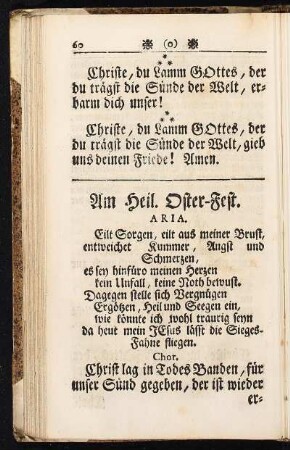 60 ❀ (o) ❀
* * *
Christe, du Lamm GOttes, der
du trägst die Sünde der Welt, er-
barm dich unser!
* * *
Christe, du Lamm GOttes, der
du trägst die Sünde der Welt, gieb
uns deinen Friede! Amen.
Am Heil. Oster-Fest.
ARIA.
Eilt Sorgen, eilt aus meiner Brust,
entweichet Kummer, Angst und
Schmerzen,
es sey hinfüro meinen Herzen
kein Unfall, keine Noth bewust.
Dagegen stelle sich Vergnügen
Ergötzen, Heil und Seegen ein,
wie könnte ich wohl traurig seyn
da heut mein JEsus läßt die Sieges-
Fahne fliegen.
Chor.
Christ lag in Todes Banden, für
unser Sünd gegeben, der ist wieder
er-